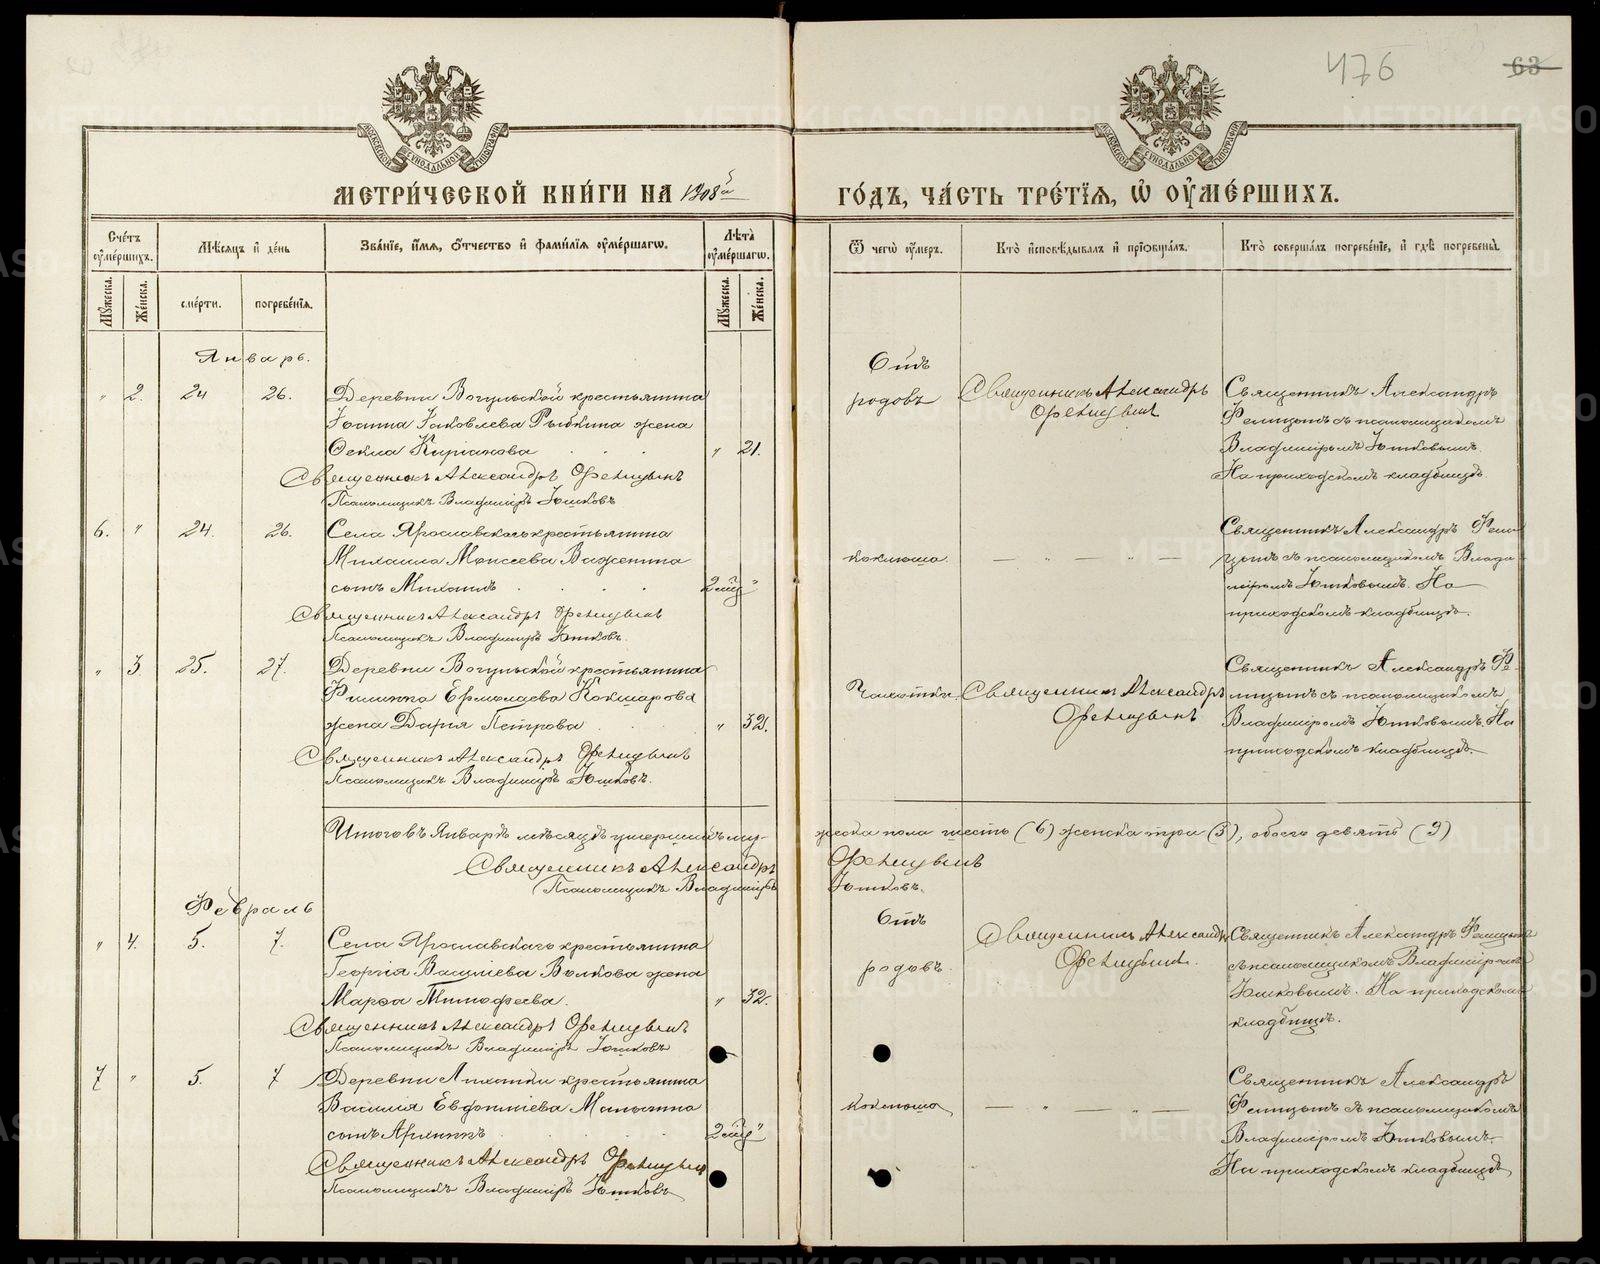 476
63
МОСКОВСКОЙ СУНОДАЛЬНОЙ ТИПОГРАФІИ
МОСКОВСКОЙ СУНОДАЛЬНОЙ ТИПОГРАФІИ
МЕТРИ́ЧЕСКОЙ КНИ́ГИ НА 1908й
ГО́ДЪ, ЧА́СТЬ ТРЕ́ТЇѦ, Ѿ ОУ҆МЕ́РШИХЪ.
Сче́тъ оу҆ме́ршихъ.
Мѣ́сѧцъ и҆ де́нь
Зва́нїе, и҆́мѧ, ѻ҆́тчество и҆ фами́лїѧ оу҆ме́ршагѡ.
Лѣ́та оу҆ме́ршагѡ.
Ѿ чегѡ̀ оу҆́меръ.
Кто̀ и҆сповѣ́дывалъ и҆ прїѡбща́лъ.
Кто̀ соверша́лъ погребе́нїе, и҆ гдѣ̀ погребены̀.
Мꙋ́жеска.
Же́нска.
сме́рти.
погребе́нїѧ.
Мꙋ́жеска.
Же́нска.
Январь.
" 2. 24 26. Деревни Вогульской крестьянина
Іоанна Іаковлева Рыбкина жена
Ѳекла Киріакова " 21.
Священникъ Александръ Фелицынъ
Псаломщикъ Владиміръ Юшковъ
Отъ
родовъ
Священникъ Александръ
Фелицынъ
Священникъ Александръ
Фелицынъ съ псаломщикомъ
Владиміромъ Юшковымъ.
На приходскомъ кладбищѣ.
6. " 24. 26. Села Ярославскаго крестьянина
Михаила Моисеева Важенина
сынъ Михаилъ 2 мѣц "
Священникъ Александръ Фелицынъ
Псаломщикъ Владиміръ Юшковъ.
коклюша.
— " — " —
Священникъ Александръ Фели
цынъ съ псаломщикомъ Влади
міромъ Юшковымъ. На
приходскомъ кладбищѣ.
" 3. 25. 27. Деревни Вогульской крестьянина
Филиппа Ермолаева Кокшарова
жена Дарія Петрова " 32.
Священникъ Александръ Фелицынъ
Псаломщикъ Владиміръ Юшковъ.
Чахотки
Священникъ Александръ
Фелицынъ
Священникъ Александръ Фе-
лицынъ съ псаломщикомъ
Владиміромъ Юшковымъ. На
приходскомъ кладбищѣ.
Итого въ Январѣ мѣсяцѣ умершихъ му-
жеска пола шесть (6) женска три (3), обоего девять (9)
Священникъ Александръ Фелицынъ
Псаломщикъ Владиміръ Юшковъ.
Февраль
" 4. 5. 7. Села Ярославскаго крестьянина
Георгія Василіева Волкова жена
Марѳа Тимофеева. " 32.
Священникъ Александръ Фелицынъ
Псаломщикъ Владиміръ Юшковъ
Отъ
родовъ.
Священникъ Александръ
Фелицынъ.
Священникъ Александръ Фелицынъ
съ псаломщикомъ Владиміромъ
Юшковымъ. На приходскомъ
кладбищѣ.
7 " 5. 7 Деревни крестьянина
Василія Евфиміева
сынъ 2 мѣц "
Священникъ Александръ Фелицынъ
Псаломщикъ Владиміръ Юшковъ
коклюша
— " — " —
Священникъ Александръ
Фелицынъ съ псаломщикомъ
Владиміромъ Юшковымъ.
На приходскомъ кладбищѣ
METRIKI.GASO-URAL.RU